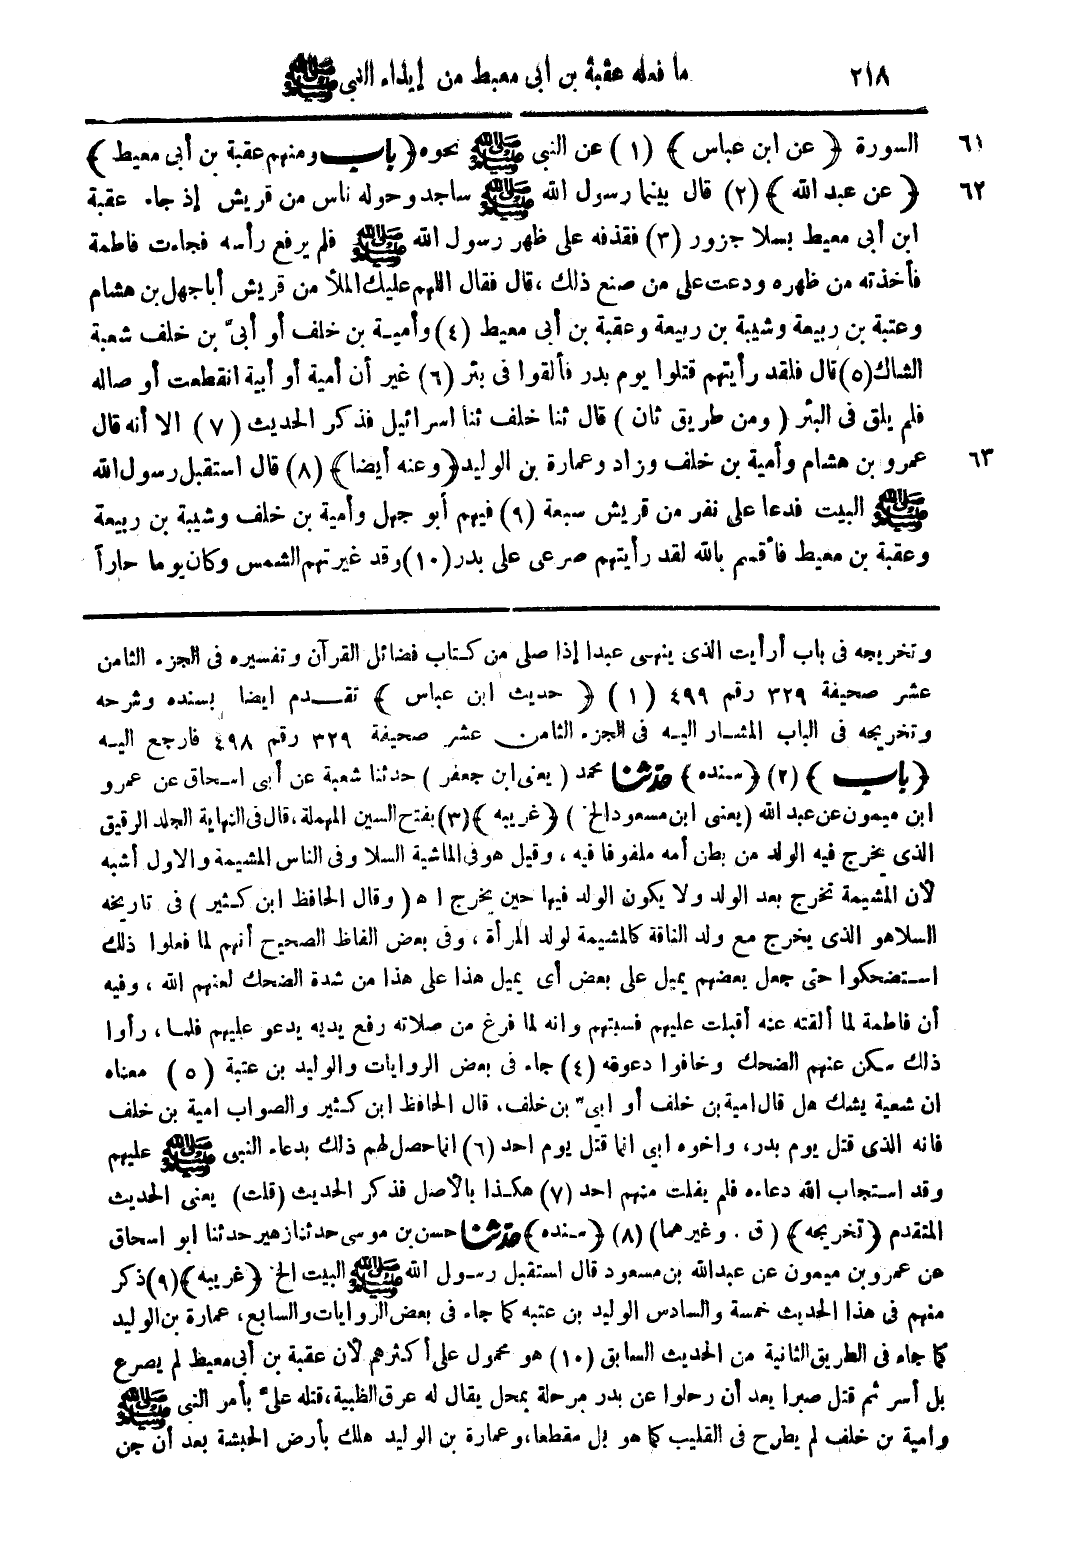 ٢١٨ ما فعله عقبة بن أبى معيط من إيذاء النبى ﷺ
٦١ السورة ﴿ عن ابن عباس ﴾ (١) عن النبى ﷺ نحوه ﴿ باب ومنهم عقبة بن أبى معيط ﴾
٦٢ ﴿ عن عبد الله ﴾ (٢) قال بينما رسول الله ﷺ ساجد وحوله ناس من قريش إذ جاء عقبة
ابن أبى معيط بسلا جزور (٣) فقذفه على ظهر رسول الله ﷺ فلم يرفع رأسه فجاءت فاطمة
فأخذته من ظهره ودعت على من صنع ذلك ، قال فقال اللهم عليك الملأ من قريش أباجهل بن هشام
وعتبة بن ربيعة وشيبة بن ربيعة وعقبة بن أبى معيط (٤) وأمية بن خلف أو أبىّ بن خلف شعبة
الشاك (٥) قال فلقد رأيتهم قتلوا يوم بدر فألقوا فى بئر (٦) غير أن أمية أو أبية انقطعت أو صاله
فلم يلق فى البئر ( ومن طريق ثان ) قال ثنا خلف ثنا اسرائيل فذكر الحديث (٧) الا أنه قال
عمرو بن هشام وأمية بن خلف وزاد وعمارة بن الوليد ﴿ وعنه أيضا ﴾ (٨) قال استقبل رسول الله ٦٣
ﷺ البيت فدعا على نفر من قريش سبعة (٩) فيهم أبو جهل وأمية بن خلف وشيبة بن ربيعة
وعقبة بن معيط فأقسم بالله لقد رأيتهم صرعى على بدر (١٠) وقد غيرتهم الشمس وكان يوما حاراً
وتخريجه فى باب أرأيت الذى ينهى عبدا إذا صلى من كتاب فضائل القرآن وتفسيره فى الجزء الثامن
عشر صحيفة ٣٢٩ رقم ٤٩٩ (١) ﴿ حديث ابن عباس ﴾ تقدم ايضا بسنده وشرحه
وتخريجه فى الباب المشار اليه فى الجزء الثامن عشر صحيفة ٣٢٩ رقم ٤٩٨ فارجع اليه
﴿ باب ﴾ (٢) ﴿ سنده ﴾ حدثنا محمد ( يعنى ابن جعفر ) حدثنا شعبة عن أبى اسحاق عن عمرو
ابن ميمون عن عبد الله ( يعنى ابن مسعود الخ ) ﴿ غريبه ﴾ (٣) بفتح السين المهملة ، قال فى النهاية الجلد الرقيق
الذى يخرج فيه الولد من بطن أمه ملفوفا فيه ، وقيل هو فى الماشية السلا وفى الناس المشيمة والاول أشبه
لأن المشيمة تخرج بعد الولد ولا يكون الولد فيها حين يخرج اه ( وقال الحافظ ابن كثير ) فى تاريخه
السلاهو الذى يخرج مع ولد الناقة كالمشيمة لولد المرأة ، وفى بعض الفاظ الصحيح أنهم لما فعلوا ذلك
استضحكوا حتى جعل بعضهم يميل على بعض أى يميل هذا على هذا من شدة الضحك لعنهم الله ، وفيه
أن فاطمة لما ألقته عنه أقبلت عليهم فسبتهم وانه لما فرغ من صلاته رفع يديه يدعو عليهم فلما رأوا
ذلك سكن عنهم الضحك وخافوا دعوته (٤) جاء فى بعض الروايات والوليد بن عتبة (٥) معناه
ان شعبة يشك هل قال امية بن خلف أو ابىّ بن خلف ، قال الحافظ ابن كثير والصواب امية بن خلف
فانه الذى قتل يوم بدر ، واخوه ابي انما قتل يوم احد (٦) انما حصل لهم ذلك بدعاء النبى ﷺ عليهم
وقد استجاب الله دعاءه فلم يفلت منهم احد (٧) هكذا بالأصل فذكر الحديث ( قلت ) يعنى الحديث
المتقدم ﴿ تخريجه ﴾ ( ق . وغيرهما ) (٨) ﴿ سنده ﴾ حدثنا حسن بن موسى حدثنا زهير حدثنا ابو اسحاق
عن عمرو بن ميمون عن عبدالله بن مسعود قال استقبل رسول الله ﷺ البيت الخ ﴿ غريبه ﴾ (٩) ذكر
منهم فى هذا الحديث خمسة والسادس الوليد بن عتبه كما جاء فى بعض الروايات والسابع ، عمارة بن الوليد
كما جاء فى الطريق الثانية من الحديث السابق (١٠) هو محمول على أكثرهم لأن عقبة بن أبى معيط لم يصرع
بل أسر ثم قتل صبرا بعد أن رحلوا عن بدر مرحلة بمحل يقال له عرق الظبية ، قتله علىّ بأمر النبى ﷺ
وامية بن خلف لم يطرح فى القليب كما هو بل مقطعا ، وعمارة بن الوليد هلك بأرض الحبشة بعد أن جن